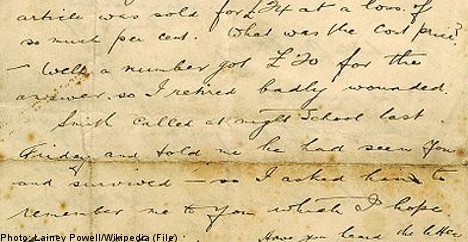 article was sold for £24 at a loss. of
so much per cent. What was the Cost price?
— Well a number got £30 for the
answer. so I retired badly wounded.
Smith called at night School last
Friday and told me he had seen you
and survived — so I asked him to
remember me to you which I hope
Have you heard the
Photo: Lainey Powell/Wikipedia (File)